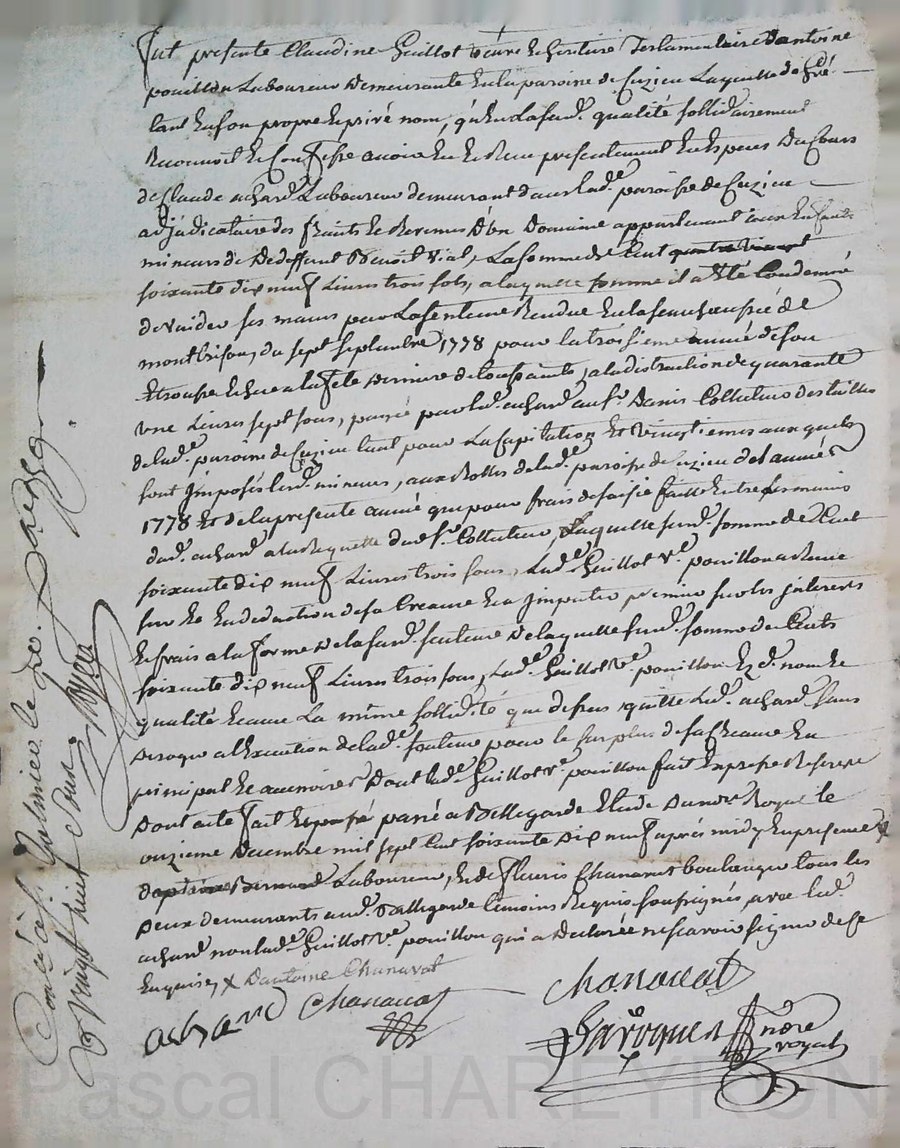 fut presente Claudine Guillot veuve & heritiere Testamentaire D'antoine
pouillon Laboureur Demeurante en la paroisse de Cuzieu Laquelle de gré
tant en son propre & privé nom, qu'en La susd.e qualité sollidairement
Reconnoit & Confesse avoir Eu & Reçu presentement En Especes Du Cours
de Claude achard Laboureur demeurant dans lad.e paroisse de Cuzieu
adjudicataire des fruits & Revenus D'un Domaine appartenant aux Enfants
mineurs de Deffunt Benoit Vial, La somme de Cent quatre vingt
soixante dix neuf Livres trois sols, a laquelle somme il a Eté Condamné
de vuider ses mains par La sentence Rendue En la senechaussée de
montbrison, du sept septembre 1778 pour la troisieme année de son
 Echue a la fete derniere de toussaints, a la distraction de quarante
une Livres sept sous, payée par led. achard au s.r Danis Collecteur des tailles
de lad.e paroisse de Cuzieu tant pour La Capitation Et Vingtiemes auxquels
sont Imposés lesd. mineurs, aux Rolles de lad.e paroisse de Cuzieu de l'année
1778 Et de la presente année que pour frais de saisie faitte Entre ses mains
dud. achard a la Requette dud. s.r Collecteur, Laquelle susd.e somme de Cent
soixante dix neuf Livres trois sous, Lad.e Guillot V.e pouillon a Reçue
sur & En deduction de sa Creance En Imputer premier sur les Interets
& frais a la forme de la susd.e sentence De laquelle susd.e somme de Cent
soixante dix neuf Livres trois sous, Lad.e Guillot V.e pouillon Esd. nom &
qualité & avec La même sollidité que dessus, quitte Led. achard sans
 a l'Execution de lad.e sentence pour le surplus de sa Creance En
principal & accessoires Dont lad.e Guillot V.e pouillon fait Expresse Reserve
Dont acte fait & passé a Bellegarde Etude Du nore Royal le
onzieme Decembre mil sept cent soixante Dix neuf après midy En presence
 Bernard Laboureur, & de fleuris Chanavat boulanger tous les
Deux demeurants aud. Bellegarde temoins Requis soussignés avec led.
achard non lad.e Guillot V.e pouillon qui a Declarée ne scavoir signer de ce
Enquise, x D'antoine Chanavat
achard Chanavat
Chanavat
 nore
royal
Con.lé à St Galmier le
 vingt huit sous